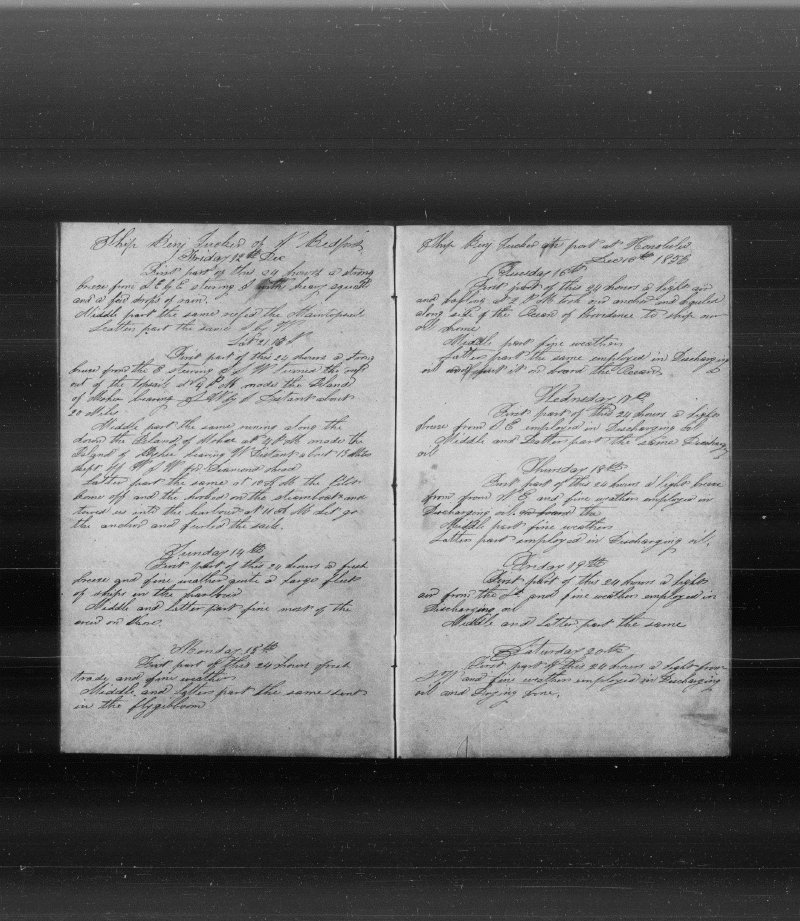 Ship Benj Tucker of N Bedford
Friday 12th Dec
First part of this 24 hours a strong
breeze from S E by E stering S with heavy squalls
and a few drops of rain.
Middle part the same reefed the Maintopsail
Latter part the same S by W
Lat 21
First part of this 24 hours a strong
breeze from the E stering S S W turned the reefs
out of the topsails at P M made the Island
of bearing distant about
20 Miles
Middle part the same runing along the
down the Island of at P M made the
Island of bearing W Distant about 15 Miles
kept W W for Diamond Head
Latter part the same at 10 A M the Pilot
come off and the hooked on the steamboat and
towed us into the harbour at 11 A M let go
the anchor and furled the sails.
Sunday 14th
First part of this 24 hours a fresh
breeze and fine weather quite a large fleet
of ships in the harbour
Middle and latter part fine most of the
crew on
Monday 15th
First part of this 24 hours fresh
trades and fine weather
Middle and latter part the same sent
in the flyingboom
Ship Benj Tucker port at Honolulu
Dec 16th 1856
Tuesday 16th
First part of this 24 hours a light air
and bafling at 2 P M took our anchor and
along side of the Ocean of Providence to ship our
oil home
Middle part fine weather
Latter part the same employed in Discharging
oil it on board the Ocean
Wednesday 17th
First part of this 24 hours a light
breeze from N E employed in Discharging oil
Middle and Latter part the same Discharging
oil
Thursday 18th
First part of this 24 hours a light breeze
from from N E and fine weather employed in
Discharging oil on board the
Middle part fine weather
Latter part employed in Discharging oil.
Friday 19th
First part of this 24 hours a light
air from the and fine weather employed in
Discharging oil
Middle and Latter part the same
Saturday 20th
First part of this 24 hours a light from
and fine weather employed in Discharging
oil and Drying bone.